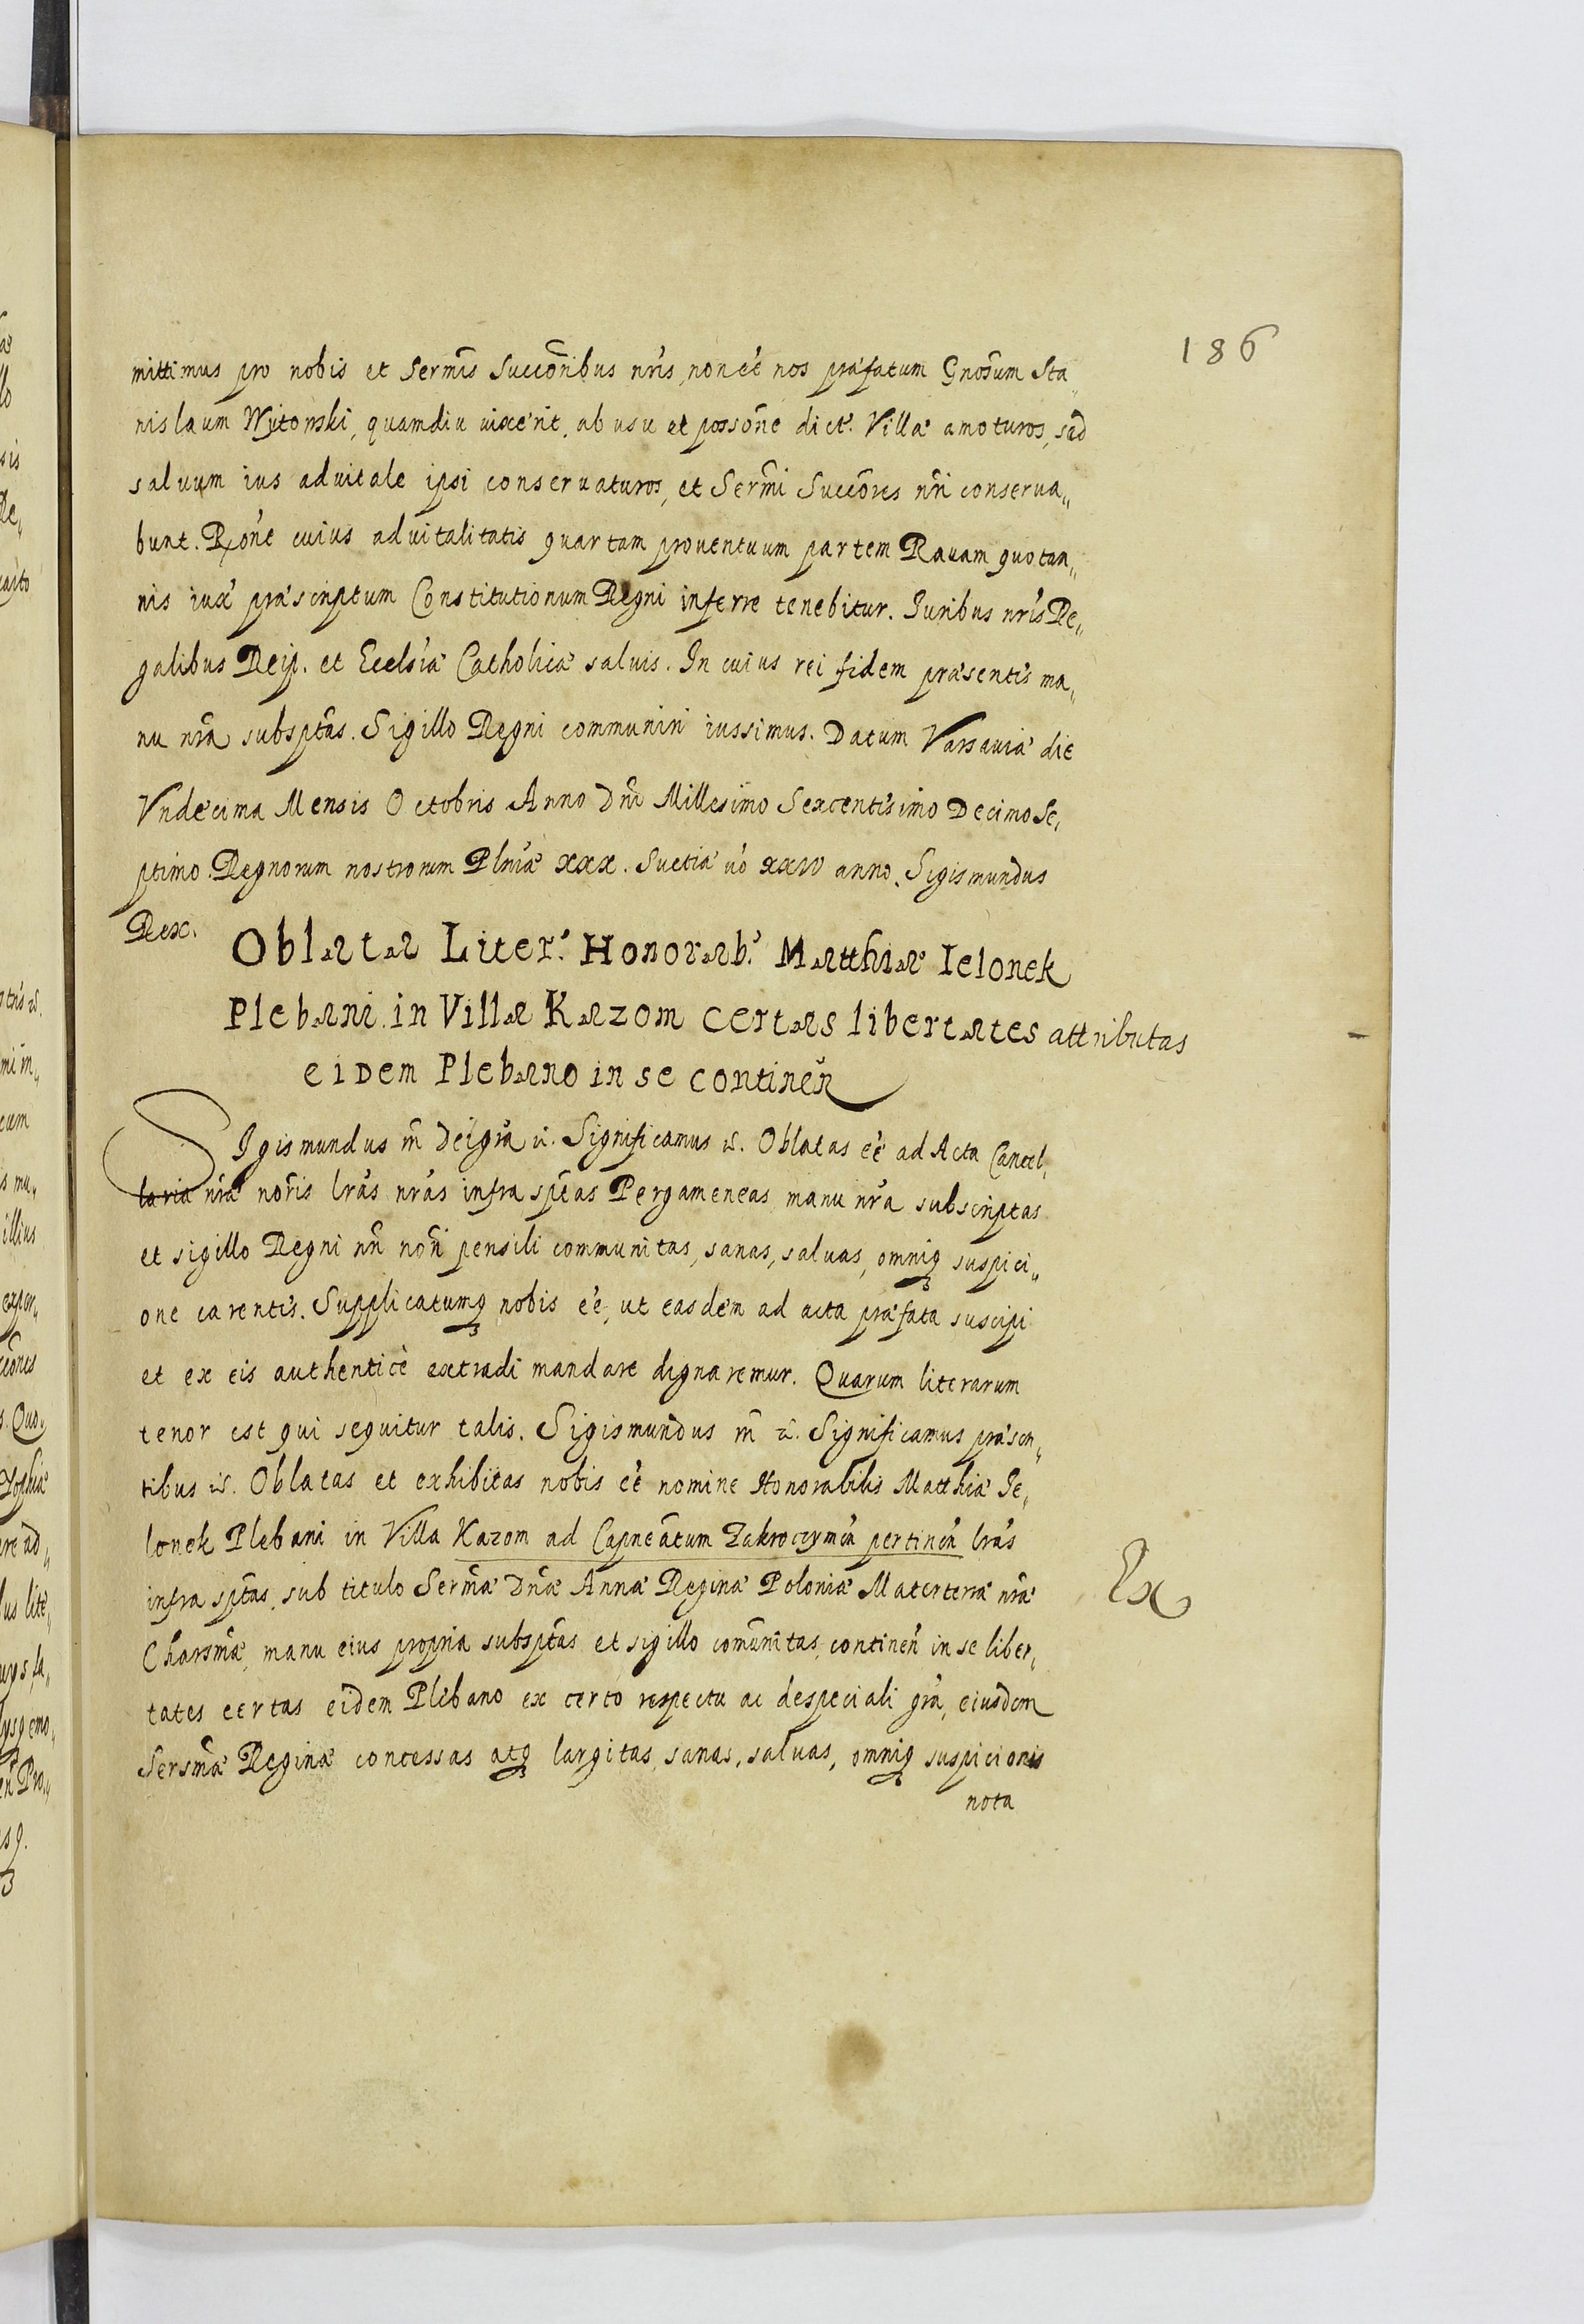 186
mittimus pro nobis et Sermis Succoribus nris, non eé nos præfatum Gnosum Sta„
nislaum Wytonski, quamdiu vixerit, ab usu et possone dictæ Villæ amoturos, sed
salvum ius advitale ipsi conservaturos, et Sermi Succores nri conserva„
bunt. Rone cuius advitalitatis quartam proventuum partem Ravam quotan„
nis iuxt præscriptum Constitutionum Regni inferre tenebitur. Iuribus nris Re„
galibus Reip. et Ecclsiæ Catholicæ salvis. In cuius rei fidem præsentes ma„
nu nra subsptas. Sigillo Regni communiri iussimus. Datum Varsaviæ die
Vndecima Mensis Octobris Anno Dni Millesimo Sexcentesimo Decimo Se„
ptimo. Regnorum nostrorum Plniæ xxx. Suetiæ vo xxiv anno. Sigismundus
Rex.
Oblata Liter. Honorab. Matthiæ Ielonek
Plebani in Villa Kazom certas libertates attributas
eidem Plebano in se continen
Sigismundus 3m Dei gra &. Significamus &. Oblatas eé ad Acta Cancel„
lariæ nræ noris lras nras infra sptas Pergameneas manu nra subscriptas
et sigillo Regni nri nori pensili communitas, sanas, salvas, omniq suspici„
one carentes. Supplicatumq nobis eé, ut easdem ad acta præfata suscipi
et ex eis authenticè extradi mandare dignaremur. Quarum literarum
tenor est qui sequitur talis. Sigismundus 3m &. Significamus præsen„
tibus &. Oblatas et exhibitas nobis eé nomine Honorabilis Matthiæ Ie„
lonek Plebani in Villa Kazom ad Capneatum Zakroczymen pertinen lras
infra sptas, sub titulo Sermæ Dnæ Annæ Reginæ Poloniæ Materteræ nræ
Charsmæ, manu eius propria subsptas et sigillo comunitas, continen in se liber„
tates certas eidem Plebano ex certo respectu ac de speciali gra, eiusdem
Sersmæ Reginæ concessas atq largitas, sanas, salvas, omniq suspicionis
nota
Ex